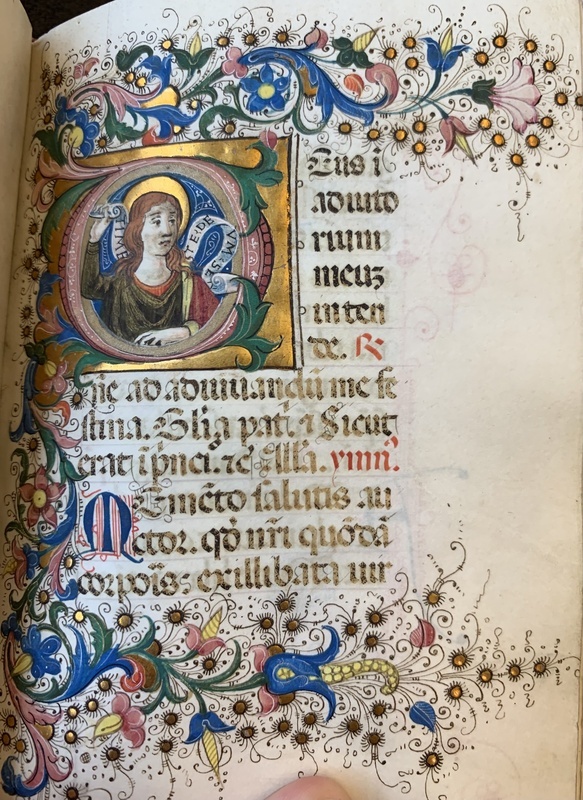 Eus i
adiuto
rium
meuz
inten
de. R
ñe ad adiuuandū me fe
stina. Glīa pati ⁊ Sicut
erat ī pñci. ⁊c̄ Allīa. ymn9.
MEmēto salutis au
ctor. qđ nr̄i quōdā
corporis exillibata uir